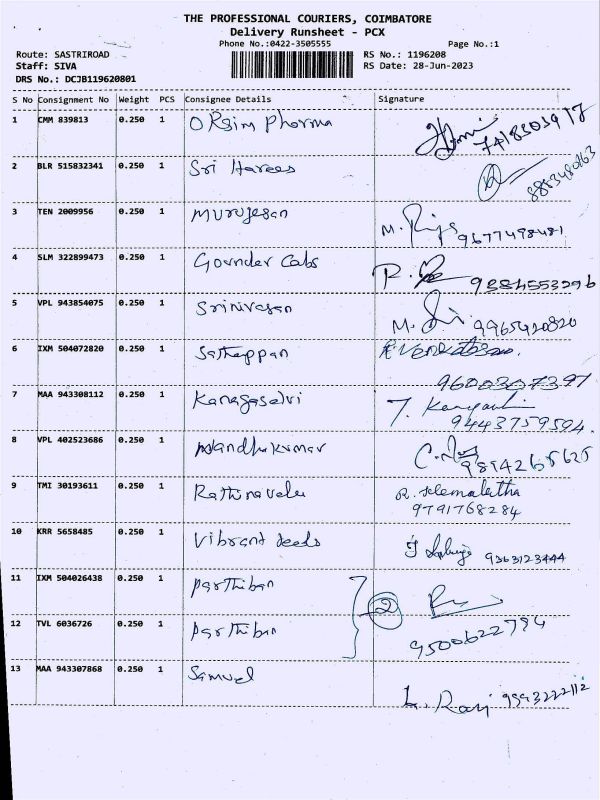 THE PROFESSIONAL COURIERS, COIMBATORE
Delivery Runsheet - PCX
Phone No.:0422-3505555 Page No.:1
Route: SASTRIROAD RS No.: 1196208
Staff: SIVA RS Date: 28-Jun-2023
DRS No.: DCJB119620801
S No Consignment No Weight PCS Consignee Details Signature
1 CMM 839813 0.250 1 ORSim Pharma
2 BLR 515832341 0.250 1 Sri Harees
3 TEN 2009956 0.250 1 Murugesan M. 9677498481
4 SLM 322899473 0.250 1 Gounder Cabs R. 9384553296
5 VPL 943854075 0.250 1 Srinivasan M. 9965420820
6 IXM 504072820 0.250 1 Sathappan
9600307397
7 MAA 943308112 0.250 1 Kanagaselvi T.
9443759594.
8 VPL 402523686 0.250 1 Nandhakumar C. 9894265625
9 TMI 30193611 0.250 1 Rathinavelu R. Hemalatha
9791768284
10 KRR 5658485 0.250 1 Vibrant Seeds 9363123444
11 IXM 504026438 0.250 1 Parthiban 2
12 TVL 6036726 0.250 1 Parthiban 9500622794
13 MAA 943307868 0.250 1 Samuel
L. Ravi 9593222112